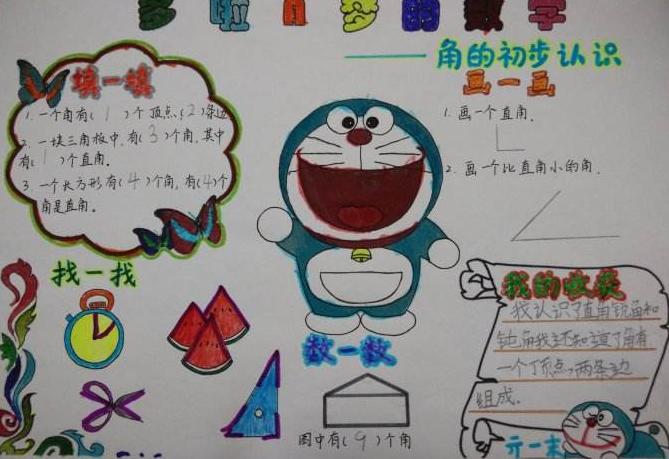 多啦A梦的数学
——角的初步认识
填一填
1. 一个角有(1)个顶点,(2)条边
2. 一块三角板中,有(3)个角,其中
有(1)个直角。
3. 一个长方形有(4)个角,有(4)个
角是直角。
画一画
1. 画一个直角.
2. 画一个比直角小的角.
找一找
数一数
图中有(9)个角
我的收获
我认识了直角锐角和
钝角我还知道了角有
一个顶点,两条边
组成。